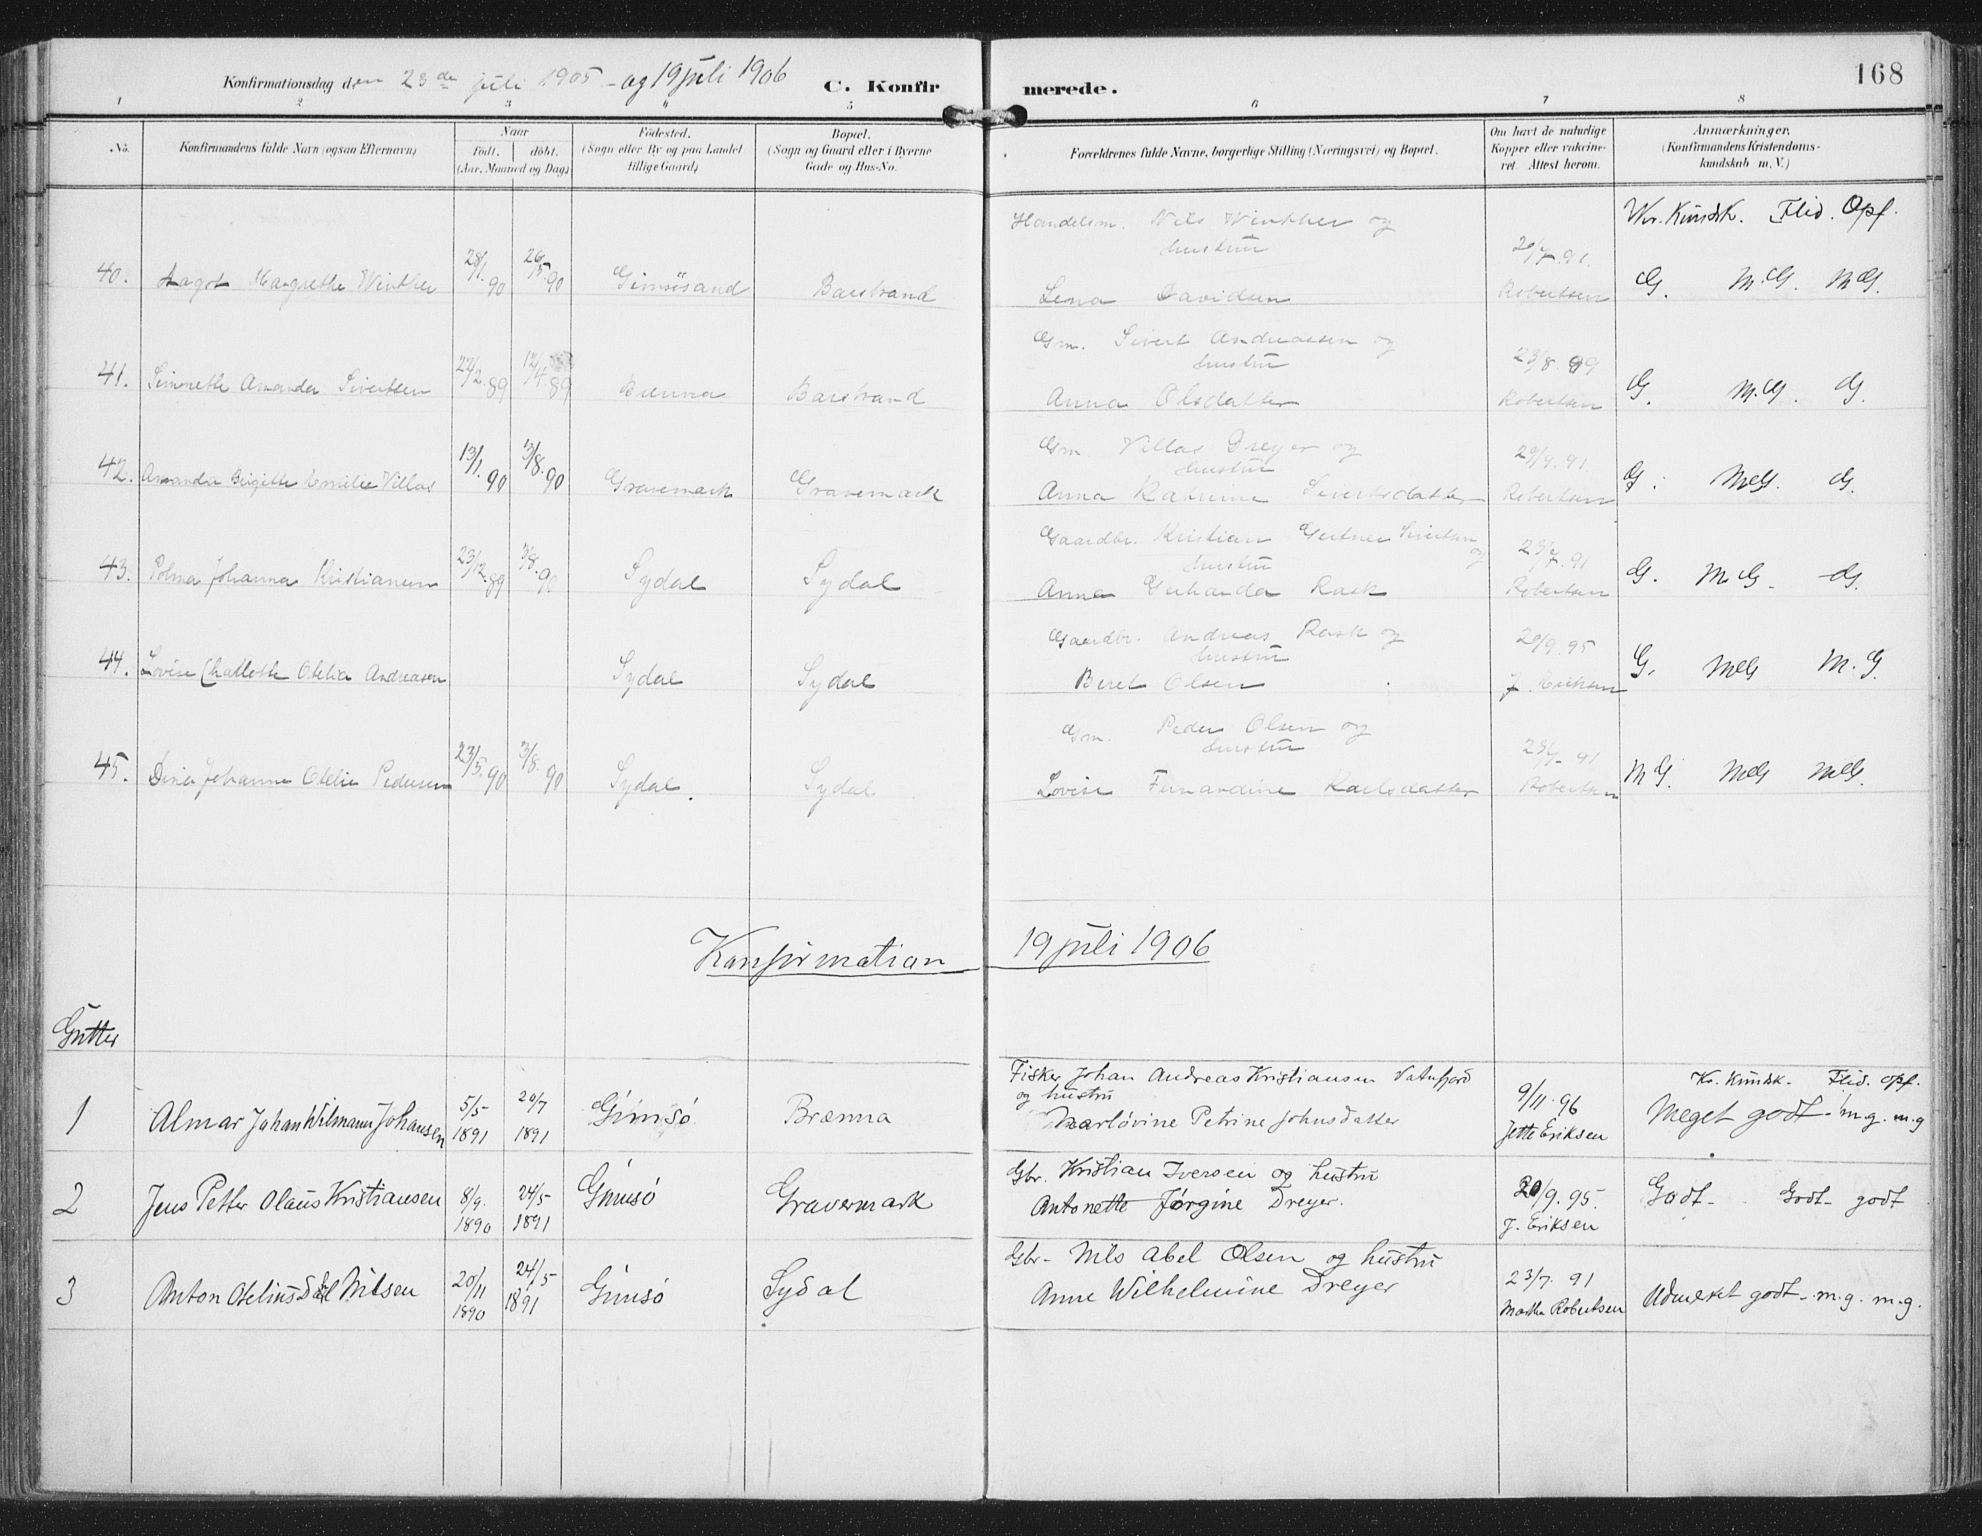 Konfirmationsdag den 23de juli 1905 - og 19 juli 1906
C. Konfirmerede.
168
1 2 3 4 5 6 7 8
No.
Konfirmandens fulde Navn (ogsaa Efternavn)
Naar
født. døbt.
(Aar, Maaned og Dag)
Fødested.
(Sogn eller By og paa Landet
tillige Gaard)
Bopæl.
(Sogn og Gaard eller i Byerne
Gade og Hus-No.
Forældrenes fulde Navne, borgerlige Stilling (Næringsvei) og Bopæl.
Om havt de naturlige
Kopper eller vakcine-
ret. Attest herom.
Anmærkninger.
(Konfirmandens Kristendoms-
kundskab m. V.)
Kr. Kundsk. Flid. Opf.
40. Aagot Margrethe Winther 28/1. 90 26/5. 90 Gimsösand Barstrand
Handelsm. Nils Winther og
hustru
Lena Davidsen
20/7. 91.
Robertsen
G. M.G. MG.
41. Simnethe Amanda Sivertsen 27/2. 89 12/4. 89 Brenna Barstrand
Gm. Sivert Andreassen og
hustru
Anna Olsdatter
23/8. 89
Robertsen
G. M.G. G.
42. Amanda Birgitte Emilie Villas 13/1. 90 3/8. 90 Gravemark Gravemark
Gm. Villas Dreyer og
hustru
Anna Katrine Sivertsdatter
20/9. 91.
Robertsen
G. MG. G.
43. Polma Johanna Kristiansen 23/12. 89 3/8. 90 Sydal Sydal
Gaardbr. Kristian Gertner Sivertsen og
hustru
Anna Gerharda Rask
23/7. 91
Robertsen
G. M.G. G.
44. Lovise Charlotte Otelia Andreasen Sydal Sydal
Gaardbr. Andreas Rask og
hustru
Beret Olsen
20/9. 95
J. Eriksen
G. MG M.G
45. Dina Johanne Otelie Pedersen 23/5. 90 3/8. 90 Sydal. Sydal
Gm. Peder Olsen og
hustru
Lovise Fernandine Karlsdatter
23/7. 91
Robertsen
MG. MG MG.
Konfirmation 19 juli 1906
Gutter
Kr. Kundsk. Flid. Opf.
1 Almar Johan Wilmann Johansen 5/5 1891 20/7 1891 Gimsö Brænna
Fisker Johan Andreas Kristiansen Vatnfjord
og hustru
Marlovine Petrine Johnsdatter
9/11. 96
Jette Eriksen
Meget godt - m.g. m.g
2 Jens Petter Olaus Kristiansen 8/9. 1890 24/5 1891 Gimsö Gravermark
Gbr. Kristian Iversen og hustru
Antonette Jørgine Dreyer.
20/9. 95.
J. Eriksen
Godt - Godt - godt
3 Anton Otelius Dal Nilsen 20/11 1890 24/5 1891 Gimsö Sydal
Gbr. Nils Abel Olsen og hustru
Anne Wilhelmine Dreyer
23/7. 91
Martha Robertsen
Udmerket godt - m.g. m.g.